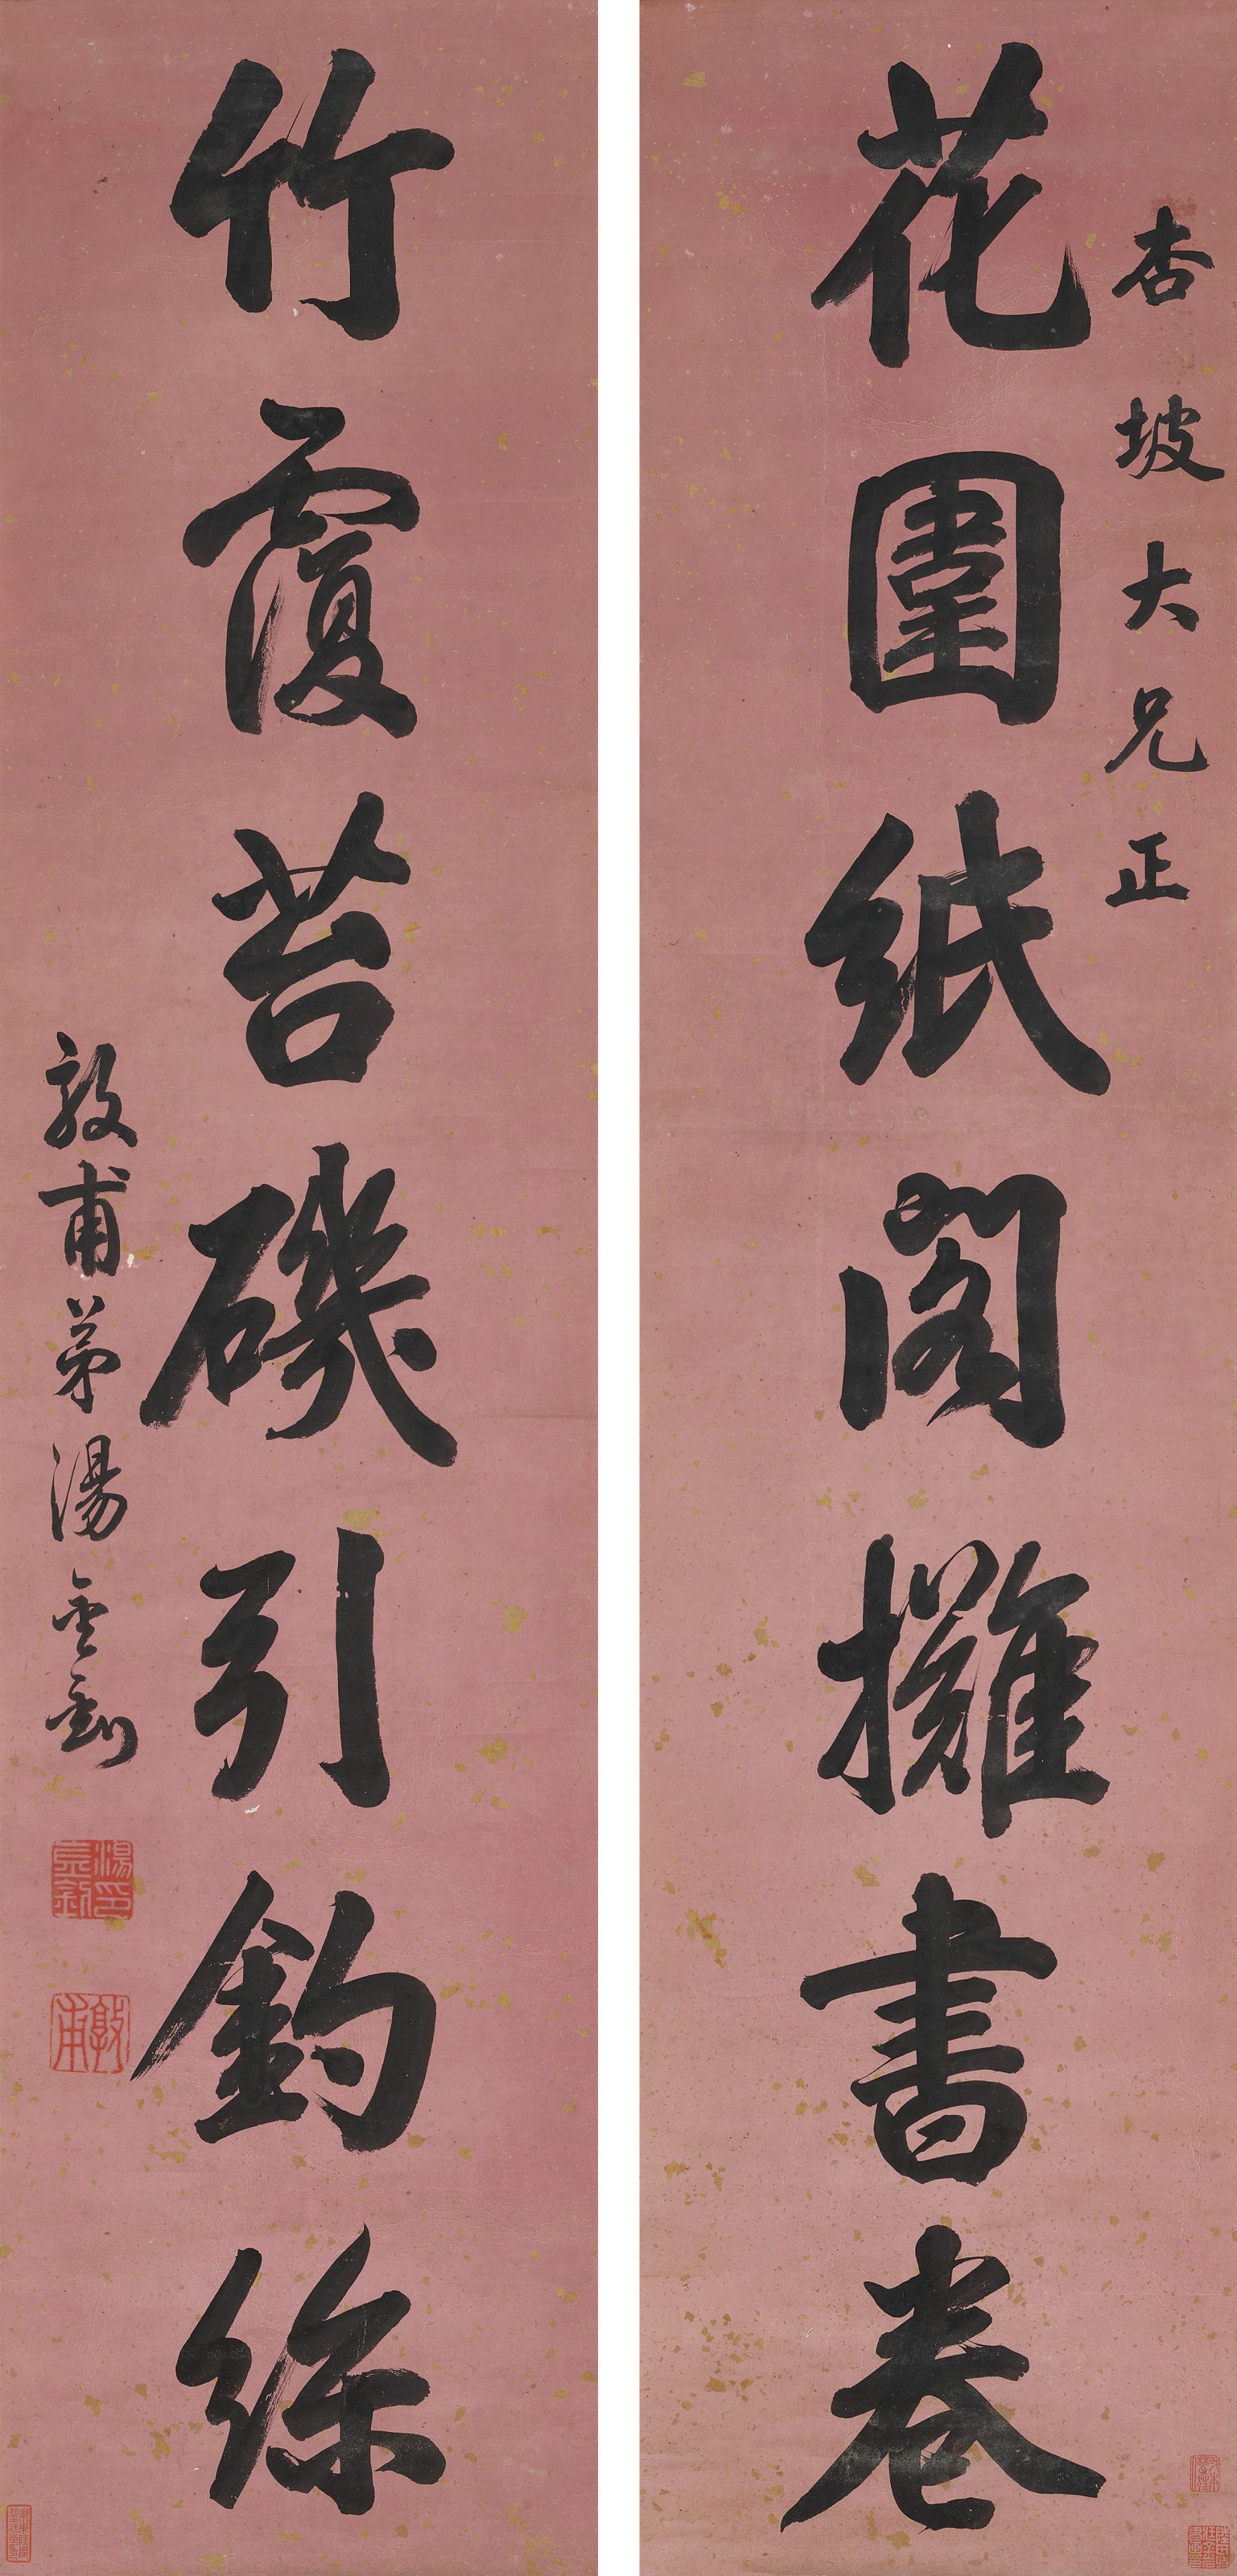 杏坡大兄正
花圍紙閣擁書卷
竹覆苔磯引釣絲
敦甫弟湯金釗
湯金釗印
敦甫